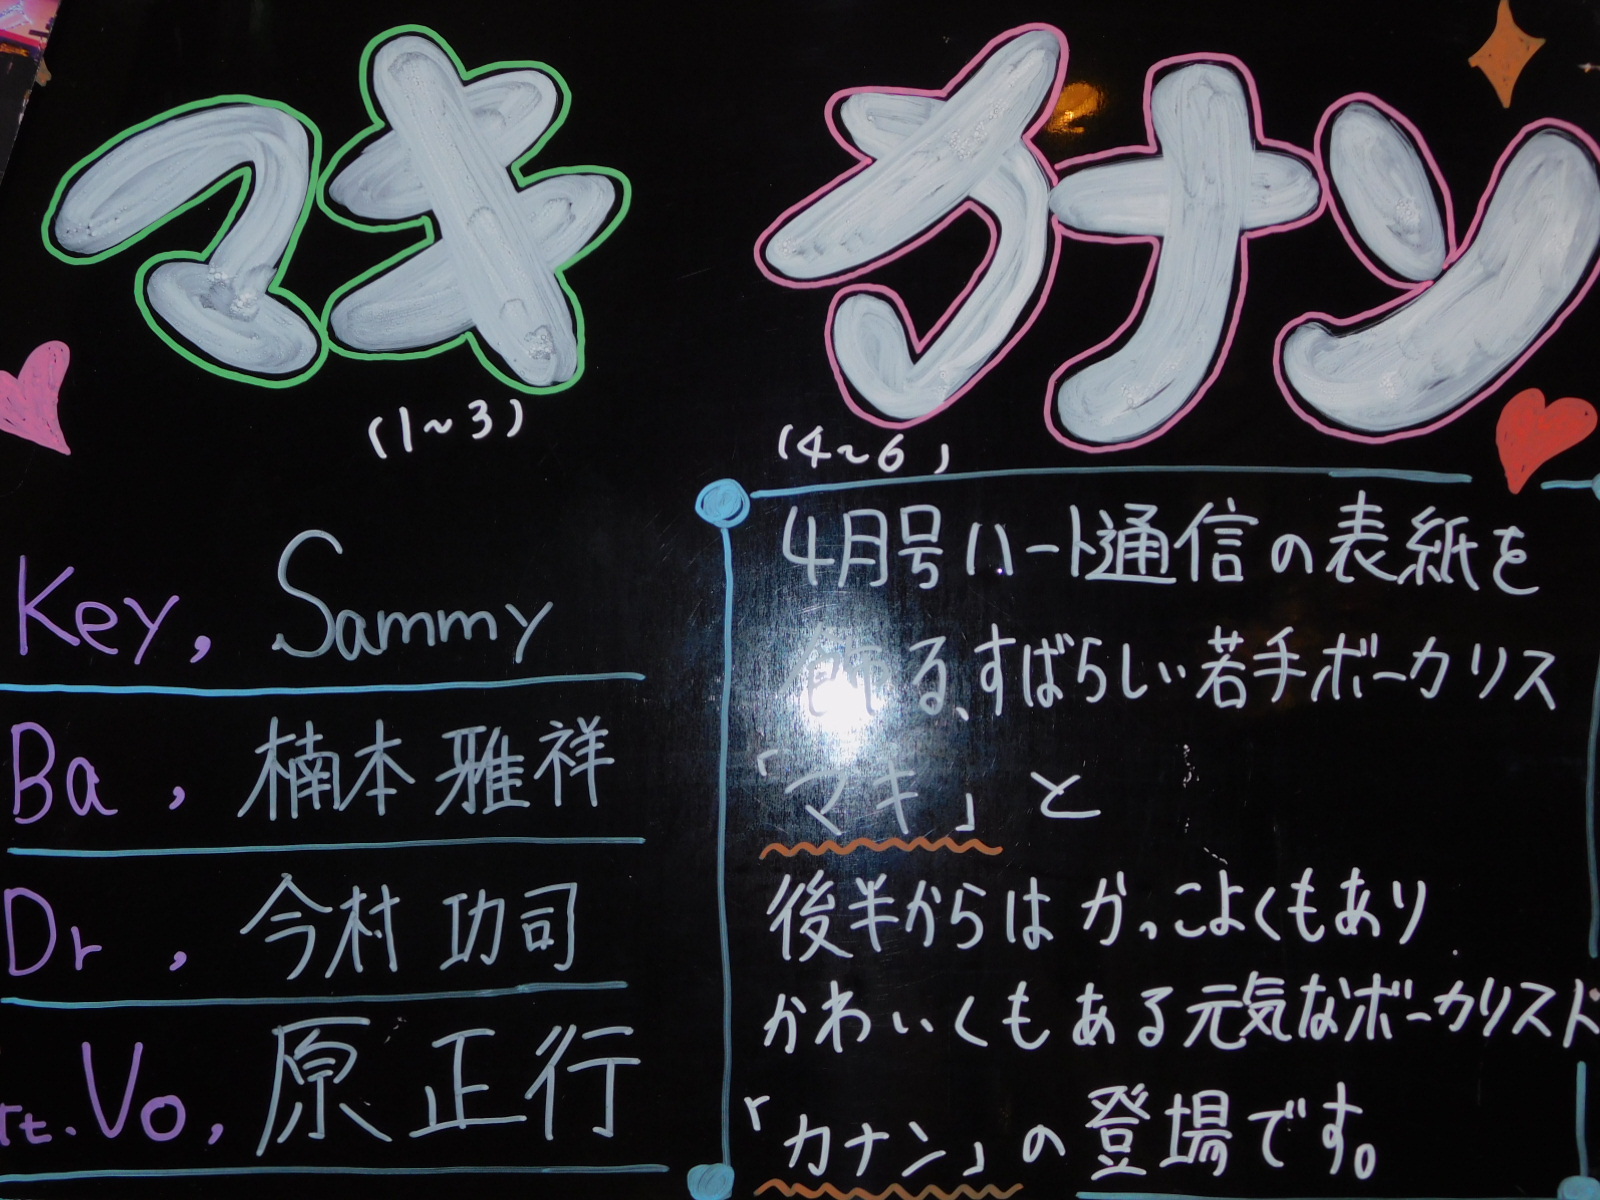 マキ
(1~3)
カナン
(4~6)
Key, Sammy
Ba, 楠本 雅祥
Dr, 今村 功司
rt. Vo, 原 正行
4月号ハート通信の表紙を
飾る、すばらしい若手ボーカリス
「マキ」と
後半からは かっこよくもあり
かわいくもある元気なボーカリスト
「カナン」の登場です。